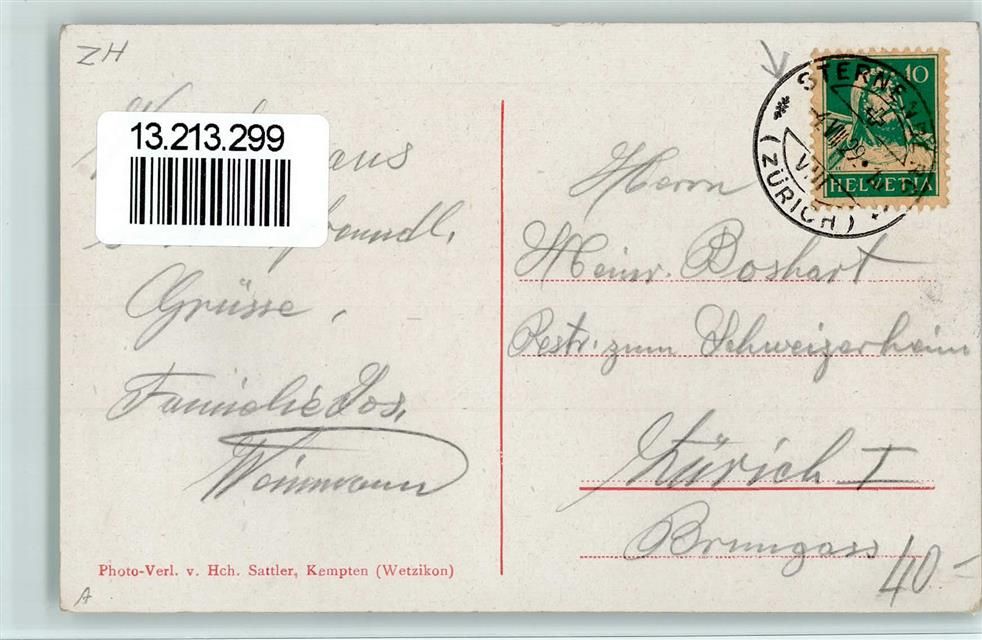 ZH
13.213.299
aus
freundl.
Grüsse,
Familie Jos.
Weinmann
Photo-Verl. v. Hch. Sattler, Kempten (Wetzikon)
A
STERNEN
(ZÜRICH)
VIII
10
HELVETIA
Herrn
Heinr. Boshart
Restr. zum Schweizerheim
Zürich I
Brungass
40.-